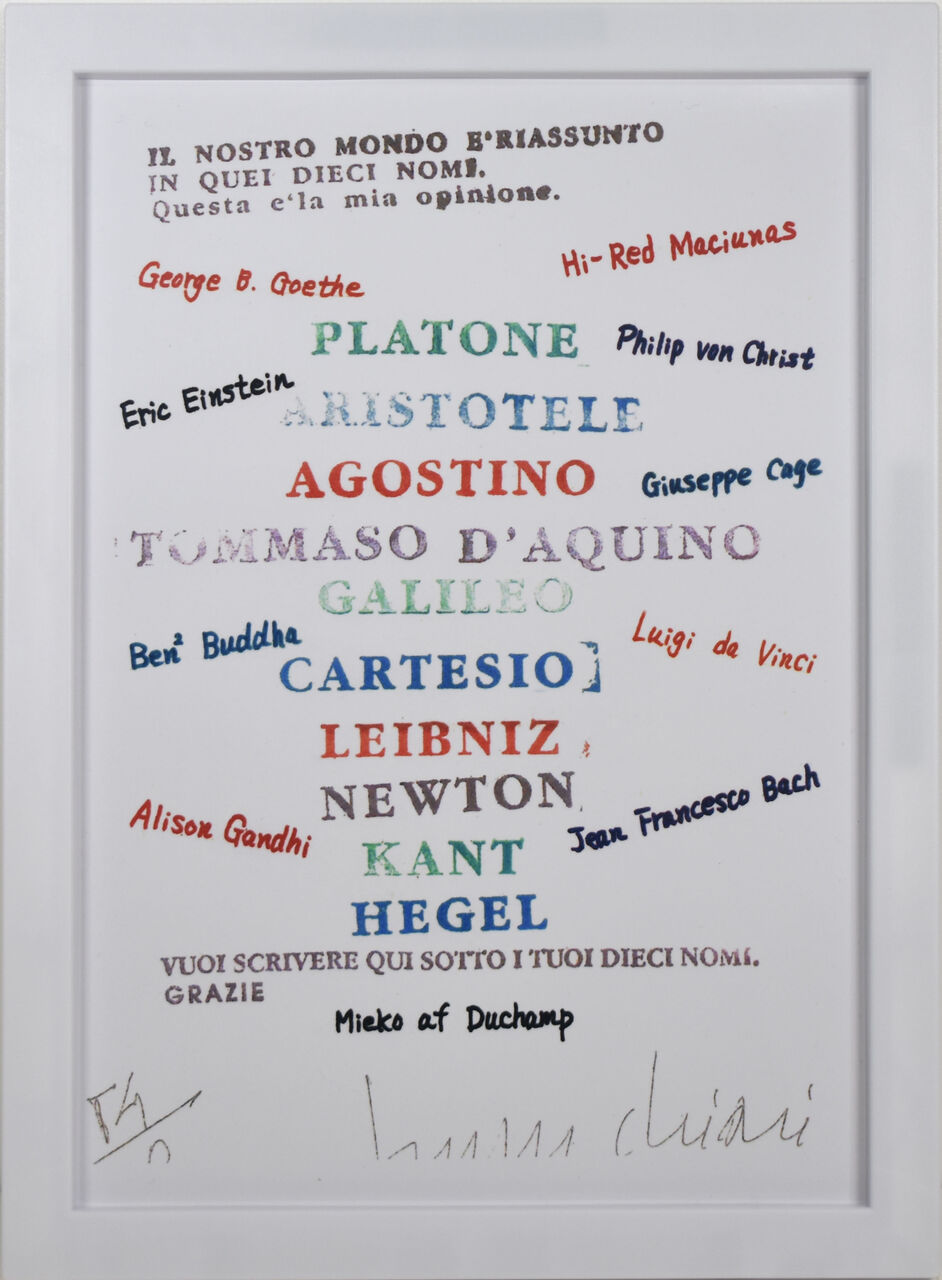 IL NOSTRO MONDO E'RIASSUNTO
IN QUEI DIECI NOMI.
Questa e'la mia opinione.
Hi-Red Maciunas
George B. Goethe
PLATONE
Philip von Christ
Eric Einstein
ARISTOTELE
AGOSTINO
Giuseppe Cage
TOMMASO D'AQUINO
GALILEO
Ben² Buddha
Luigi da Vinci
CARTESIO]
LEIBNIZ
NEWTON
Jean Francesco Bach
Alison Gandhi
KANT
HEGEL
VUOI SCRIVERE QUI SOTTO I TUOI DIECI NOMI.
GRAZIE
Mieko af Duchamp
chiari